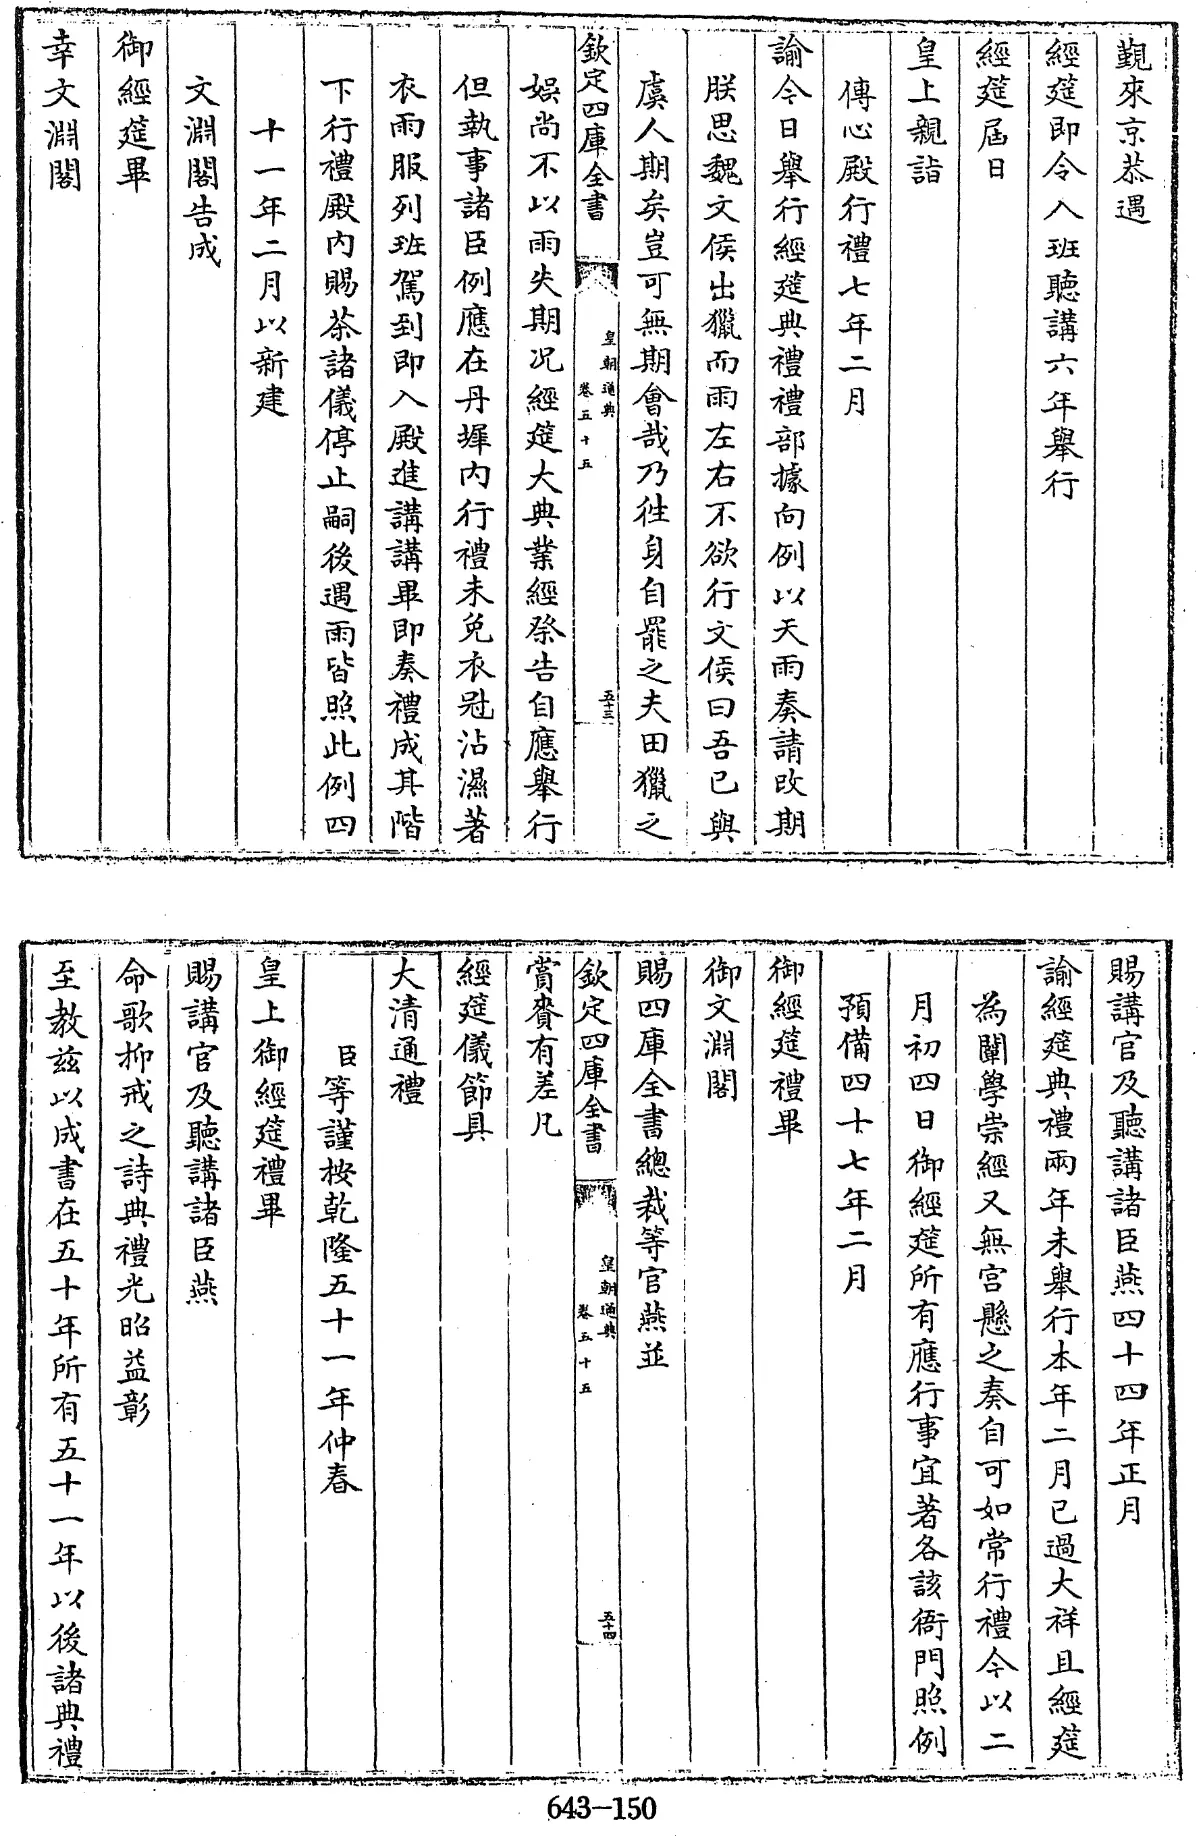 覲來京恭遇
經筵即令入班聽講六年舉行
經筵屆日
皇上親詣
傳心殿行禮七年二月
諭今日舉行經筵典禮禮部據向例以天雨奏請改期
朕思魏文侯出獵而雨左右不欲行文侯曰吾已與
虞人期矣豈可無期會哉乃徃身自罷之夫田獵之
欽定四庫全書
皇朝通典
卷五十五
五十三
娛尚不以雨失期况經筵大典業經祭告自應舉行
但執事諸臣例應在丹墀内行禮未免衣冠沾濕著
衣雨服列班駕到即入殿進講講畢即奏禮成其階
下行禮殿内賜茶諸儀停止嗣後遇雨皆照此例四
十一年二月以新建
文淵閣告成
御經筵畢
幸文淵閣
賜講官及聽講諸臣燕四十四年正月
諭經筵典禮兩年未舉行本年二月已過大祥且經筵
為闡學崇經又無宫懸之奏自可如常行禮今以二
月初四日御經筵所有應行事宜著各該衙門照例
預備四十七年二月
御經筵禮畢
御文淵閣
賜四庫全書總裁等官燕並
欽定四庫全書
皇朝通典
卷五十五
五十四
賞賚有差凡
經筵儀節具
大清通禮
臣等謹按乾隆五十一年仲春
皇上御經筵禮畢
賜講官及聽講諸臣燕
命歌抑戒之詩典禮光昭益彰
至教兹以成書在五十年所有五十一年以後諸典禮
643-150